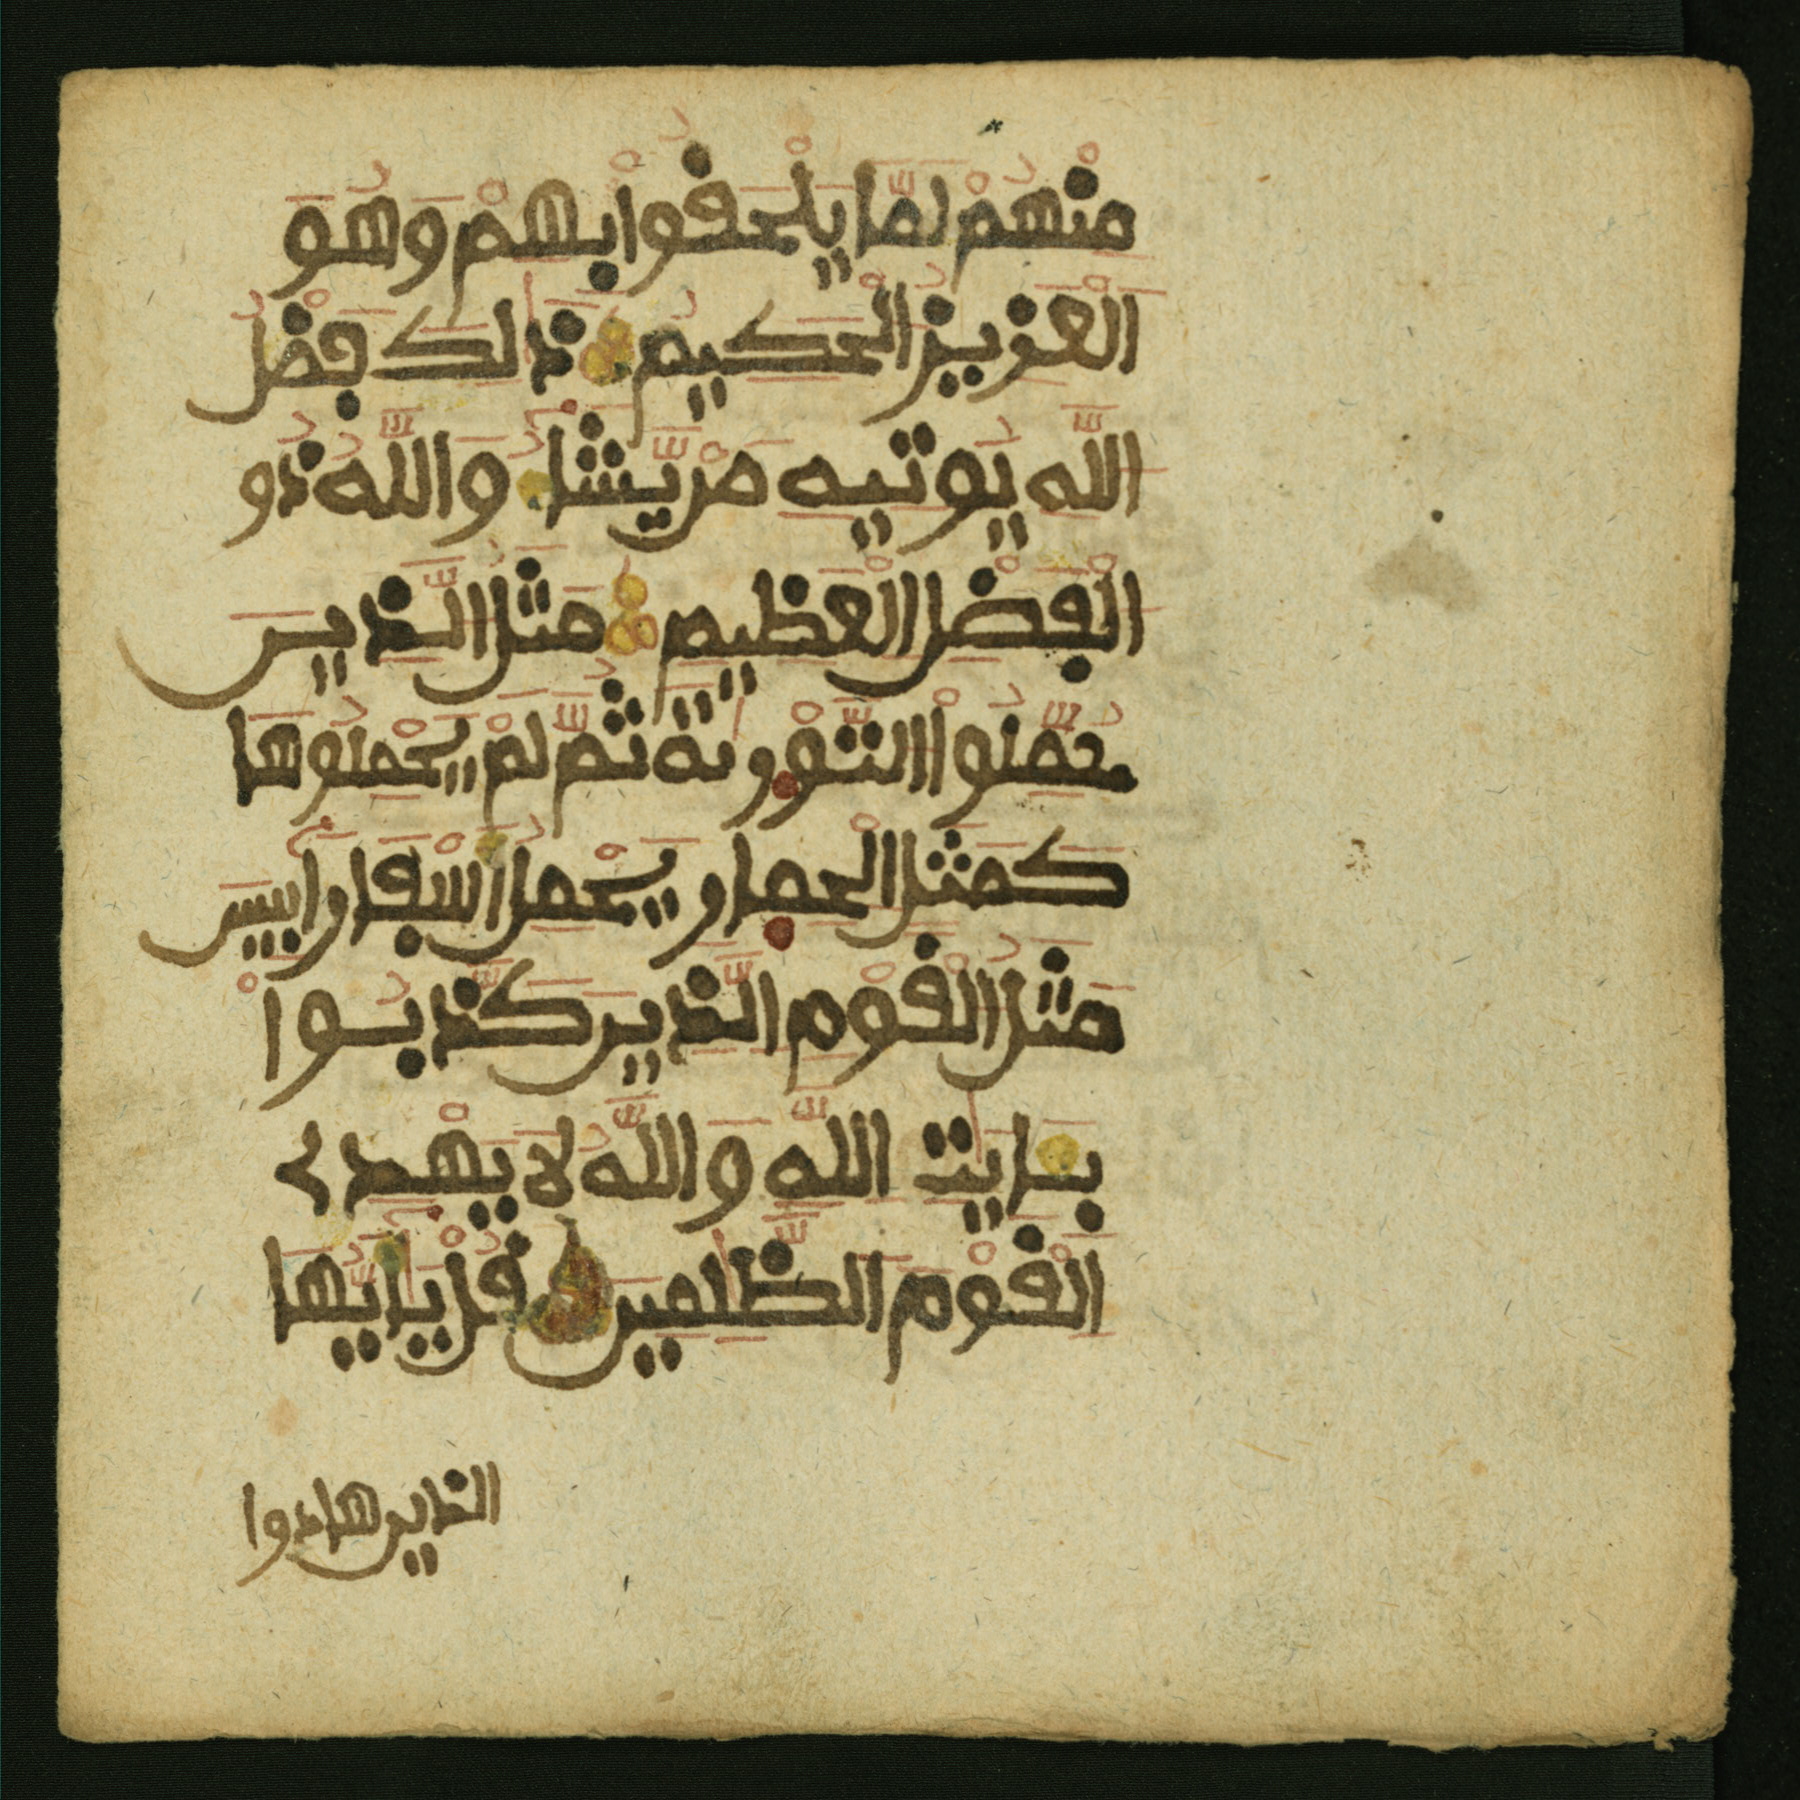 مِنْهُمْ لَمَّا يَلْحَقُواْ بِهِمْ وَهُوَ
الْعَزِيزُ الْحَكِيمُ ذَالِكَ فَضْلُ
اللَّهِ يُوتِيهِ مَنْ يَّشَآءُ وَاللَّهُ ذُو
الْفَضْلِ الْعَظِيمِ مَثَلُ الَّذِينَ
حُمِّلُواْ التَّوْرَيةَ ثُمَّ لَمْ يَحْمِلُوهَا
كَمَثَلِ الْحِمَارِ يَحْمِلُ أَسْفَاراً بِيسَ
مَثَلُ الْقَوْمِ الَّذِينَ كَذَّبُواْ
بِـَٔايَٰتِ اللَّهِ وَاللَّهُ لَا يَهْدِے
الْقَوْمَ الظَّٰلِمِينَ قُلْ يَٰٓأَيُّهَا
الذين هادوا